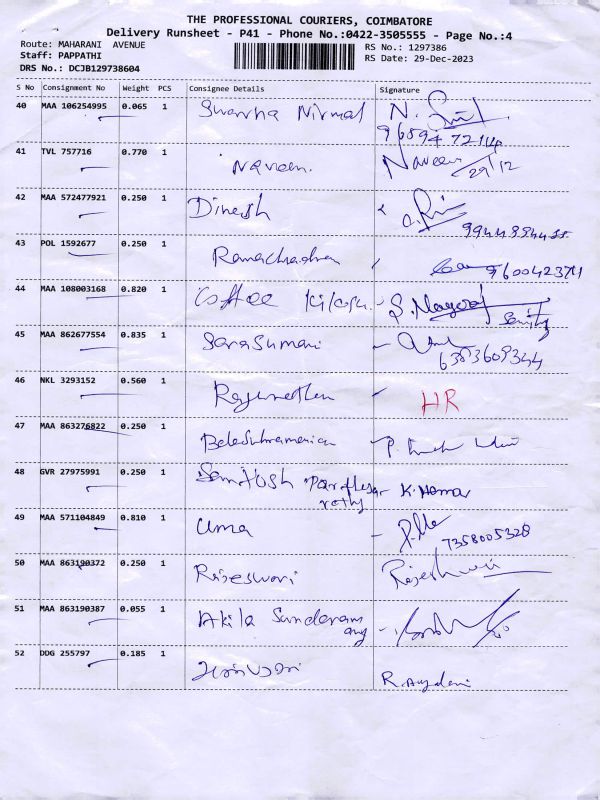 THE PROFESSIONAL COURIERS, COIMBATORE
Delivery Runsheet - P41 - Phone No.:0422-3505555 - Page No.:4
Route: MAHARANI AVENUE
RS No.: 1297386
Staff: PAPPATHI
RS Date: 29-Dec-2023
DRS No.: DCJB129738604
S No Consignment No Weight PCS Consignee Details Signature
40 MAA 106254995 0.065 1 Nirmal N.
41 TVL 757716 0.770 1 Naveen. Naveen 29/12
42 MAA 572477921 0.250 1 Dinesh
43 POL 1592677 0.250 1 Ramachadran
44 MAA 108003168 0.820 1 Coffee S. Nagaraj
45 MAA 862677554 0.835 1 Sarasumani
6383609344
46 NKL 3293152 0.560 1 HR
47 MAA 863276822 0.250 1 Balasubramanian P.
48 GVR 27975991 0.250 1 Santosh K. Hema
49 MAA 571104849 0.810 1 Uma
7358005328
50 MAA 863190372 0.250 1 Rajeswari Rajeshwari
51 MAA 863190387 0.055 1 Akila Sundaram
52 DDG 255797 0.185 1 R.